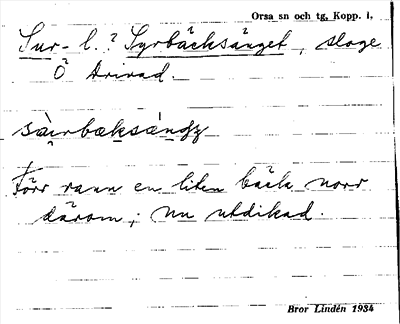 Orsa sn och tg, Kopp. l.
Sur- l. ? Syrbäcksänget, sloge
Ö
sàırbæksǽngɡ̣
Förr rann en liten bäck norr
därom; nu utdikad.
Bror Lindén 1934